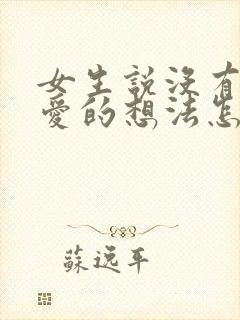 女生說沒有
愛的想法怎
蘇逸平